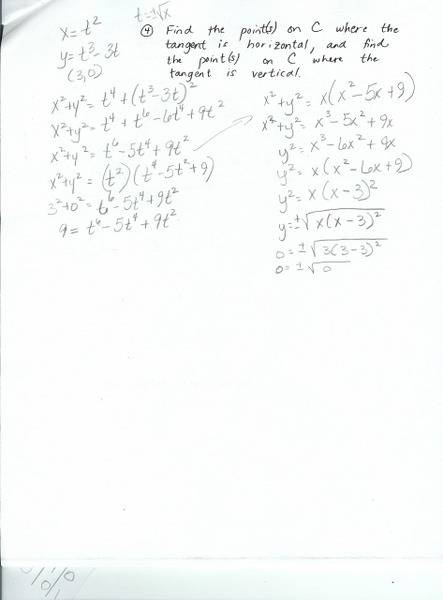 x=t² t=±√x
y=t³-3t
(3,0)
④ Find the point(s) on C where the
tangent is horizontal, and find
the point(s) on C where the
tangent is vertical.
x²+y²= t⁴+(t³-3t)²
x²+y²= t⁴+t⁶-6t⁴+9t²
x²+y²= t⁶-5t⁴+9t²
x²+y²= (t²)(t⁴-5t²+9)
3²+0²= t⁶-5t⁴+9t²
9= t⁶-5t⁴+9t²
x²+y²= x(x²-5x+9)
x²+y²= x³-5x²+9x
y²= x³-6x²+9x
y²= x(x²-6x+9)
y²= x(x-3)²
y=±√x(x-3)²
0=±√3(3-3)²
0=±√0